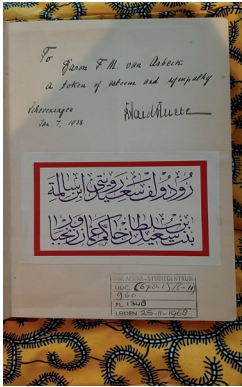 To
Baron F. M. van Asbeck
a token of esteem and sympathy
Scheveningen
Jan. 7, 1928
رودولف سعيد روتي ابن سالمة
بنت سعيد سلطان حاكم عمان وزنجبار
AFRIKA-STUDIECENTRUM
1960
PL. 1348
LEIDEN 25-11-1968